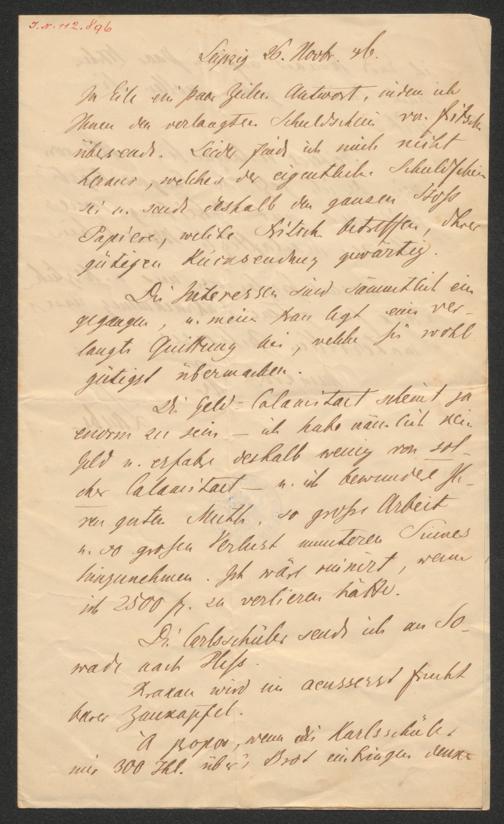 I.N. 112.896
Leipzig 26. Novbr. 46.
In Eile ein paar Zeilen Antwort, indem ich
Ihnen den verlangten Schuldschein von Fritsch
übersende. Leider finde ich mich nicht
heraus, welches der eigentliche Schuldschein
sei u. sende deshalb den ganzen Stoß
Papiere, welche Fritsch betreffen, Ihrer
gütigen Rücksendung gewärtig.
Die Interessen sind sämmtlich ein
gegangen, u. meine Frau legt eine ver-
langte Quittung bei, welche Sie wohl
gütigst übermachen.
Die Geld-Calamitaet scheint ja
enorm zu sein – ich habe nämlich kein
Geld u. erfahre deshalb wenig von sol-
cher Calamitaet – u. ich bewundre Ih-
ren guten Muth, so große Arbeit
u. so großen Verlust munteren Sinnes
hinzunehmen. Ich wäre ruinirt, wenn
ich 2500 f. zu verlieren hätte.
Die Carlsschüler sende ich an So-
wade nach
Krakau wird ein aeusserst frucht
barer Zankapfel.
A propos, wenn die Karlsschüler
mir 300 Thl. über's Brot einbringen